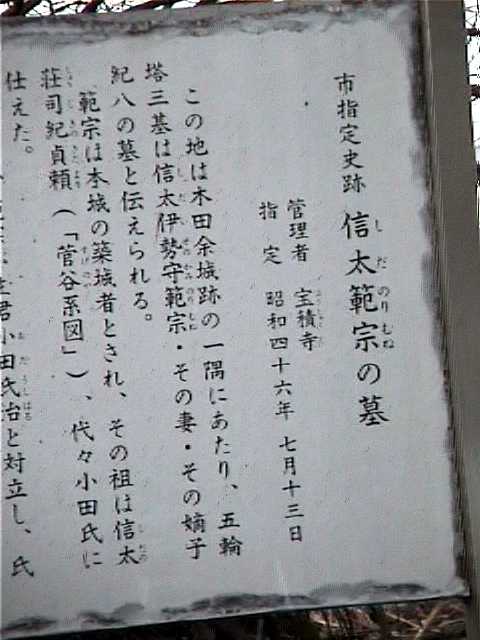 市指定史跡 信太範宗の墓
管理者 宝積寺
指定 昭和四十六年 七月十三日
この地は木田余城跡の一隅にあたり、五輪
塔三基は信太伊勢守範宗・その妻・その嫡子
紀八の墓と伝えられる。
範宗は本城の築城者とされ、その祖は信太
荘司紀貞頼(「菅谷系図」)、代々小田氏に
仕えた。
小田氏治と対立し、氏